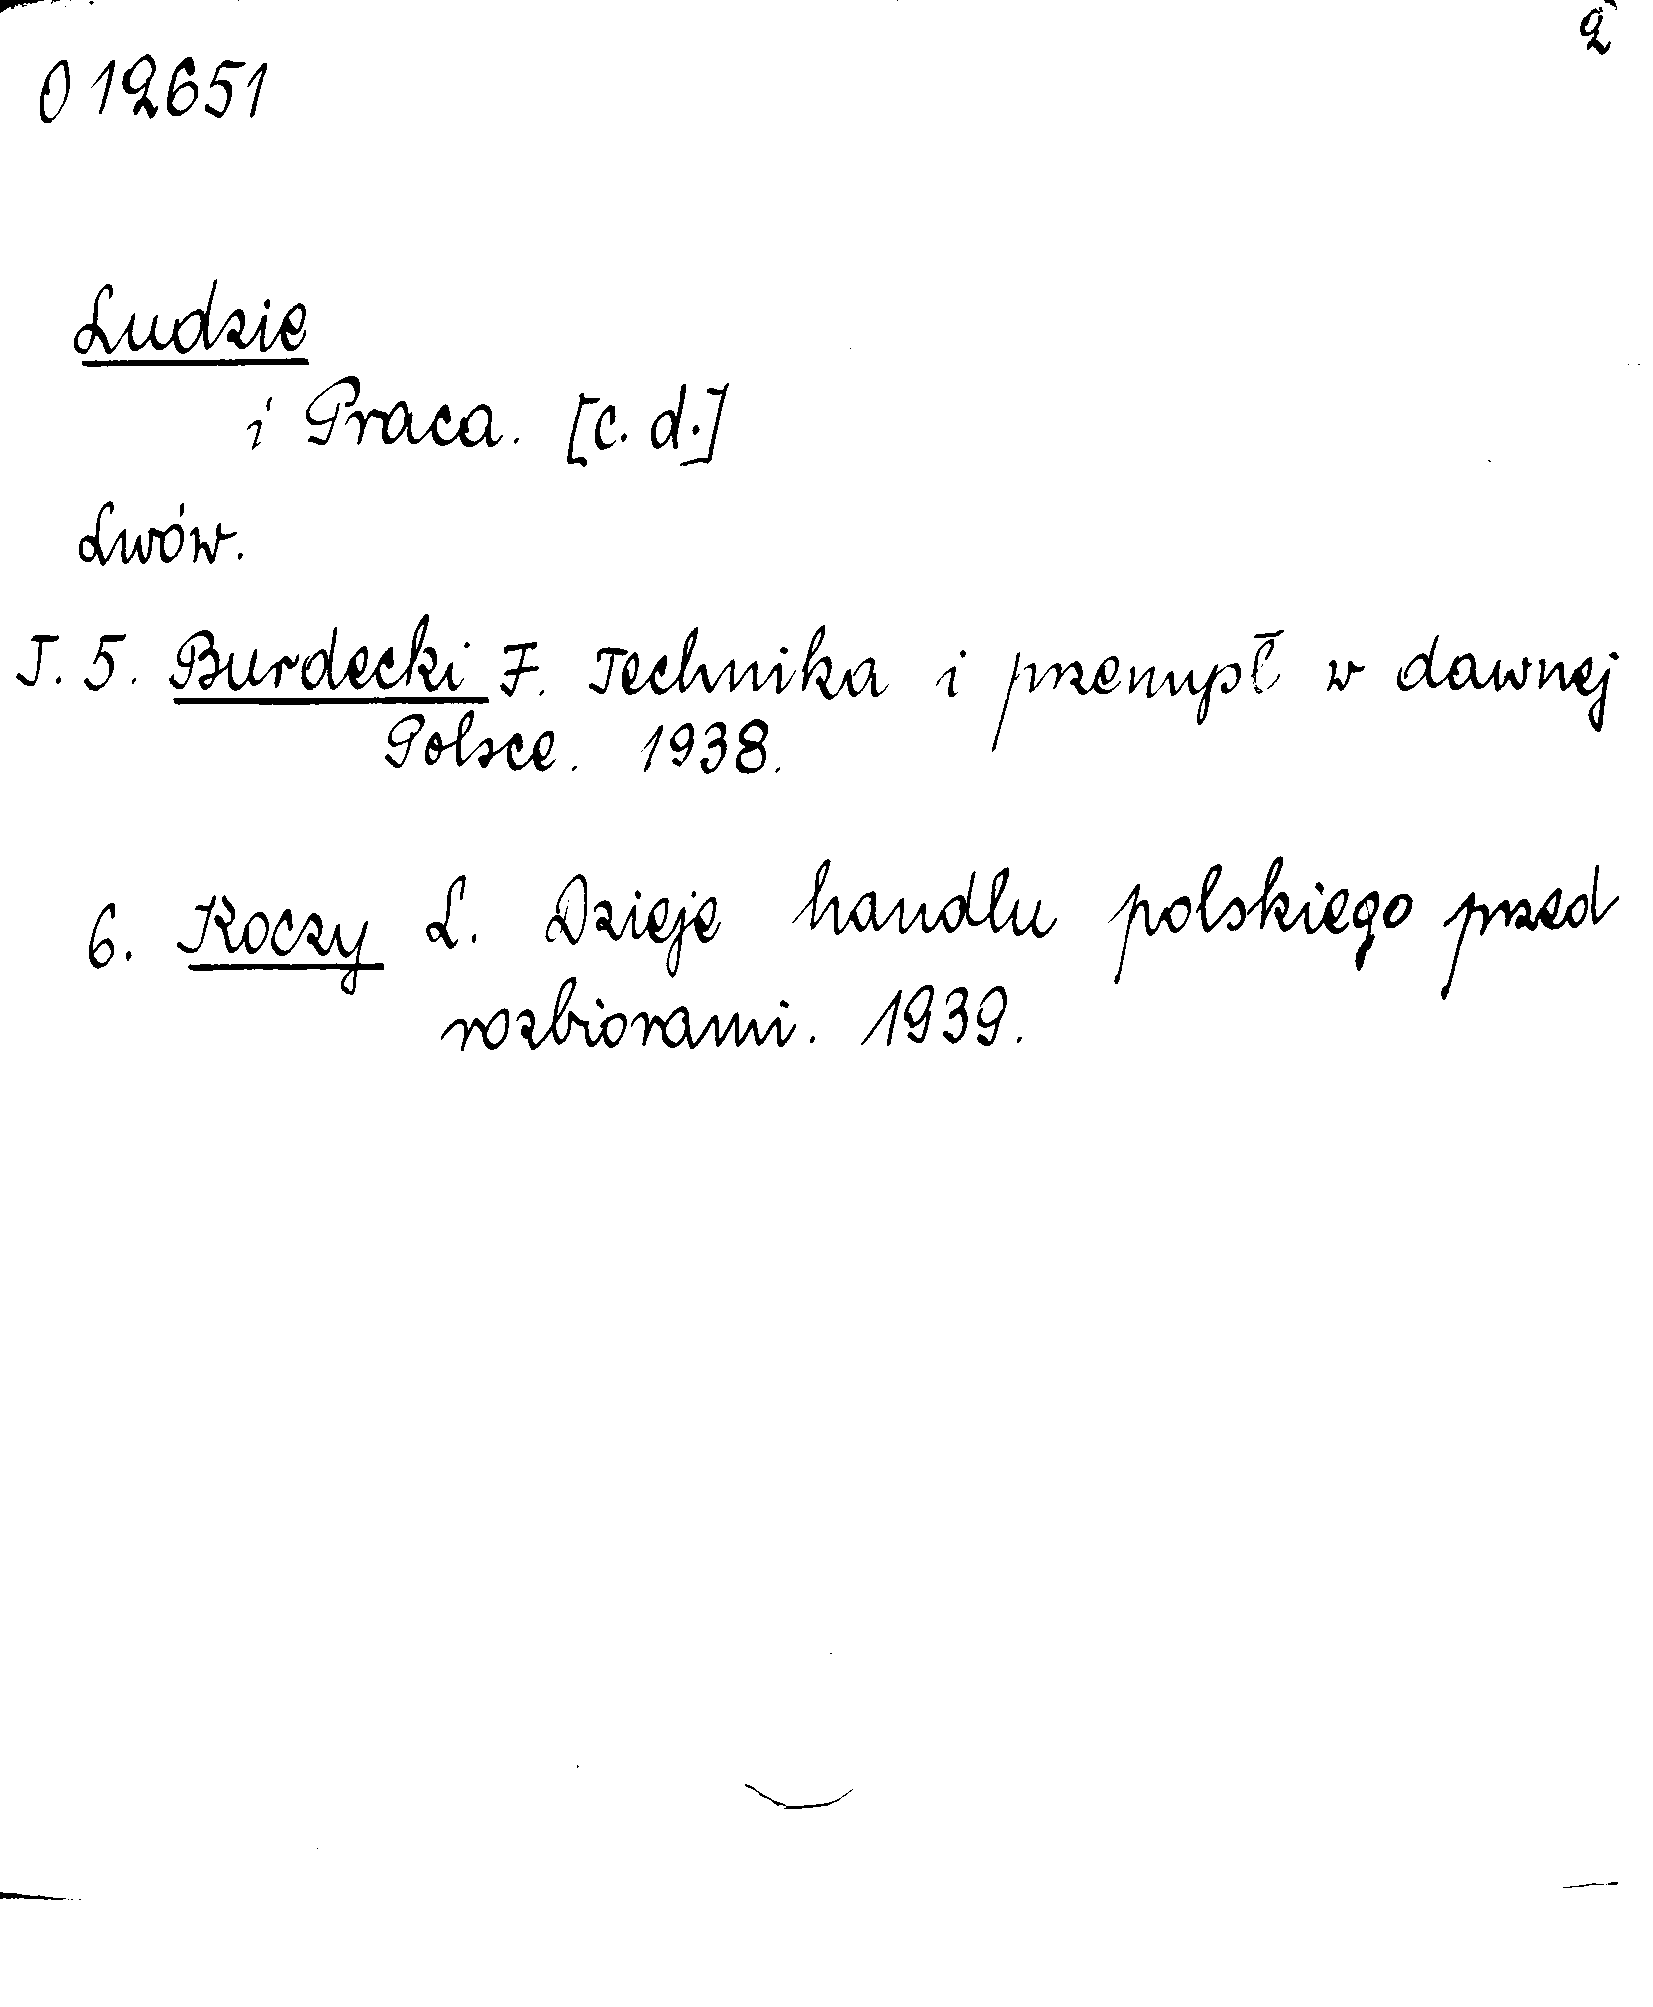 2
0 12651
Ludzie
i Praca. [c. d.]
Lwów.
T. 5. Burdecki F. Technika i przemysł w dawnej
Polsce. 1938.
6. Koczy L. Dzieje handlu polskiego przed
rozbiorami. 1939.